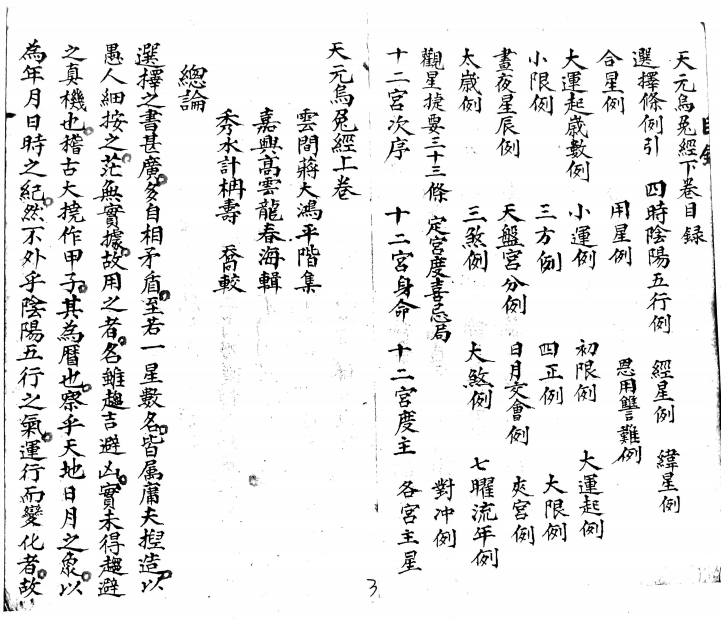 目錄
天元烏兔經下卷目錄
選擇條例引 四時陰陽五行例 經星例 緯星例
合星例 用星例 恩用讐難例
大運起歲數例 小運例 初限例 大運起例
小限例 三方例 四正例 大限例
晝夜星辰例 天盤宮分例 日月交會例 夾宮例
太歲例 三煞例 大煞例 七曜流年例
觀星捷要三十三條 定宮度喜忌局 對冲例
十二宮次序 十二宮身命 十二宮度主 各宮主星
天元烏兔經上卷
雲間蔣大鴻平階集
嘉興高雲龍春海輯
秀水計枬壽 喬較
總論
選擇之書甚廣多自相矛盾至若一星數名皆属庸夫揑造以
愚人細按之茫無實據故用之者名雖趨吉避凶實未得趨避
之真機也稽古大撓作甲子其為曆也察乎天地日月之象以
為年月日時之紀然不外乎陰陽五行之氣運行而變化者故
3